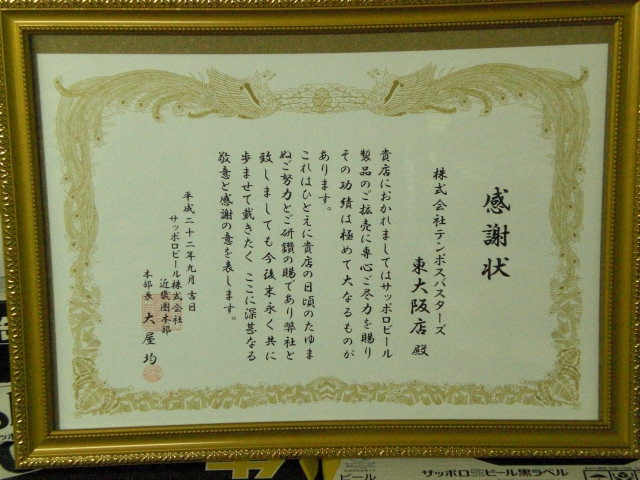 感謝状
株式会社テンポスバスターズ
東大阪店 殿
貴店におかれましてはサッポロビール
製品のご拡売に専心ご尽力を賜り
その功績は極めて大なるものが
あります。
これはひとえに貴店の日頃のたゆま
ぬご努力とご研鑽の賜であり弊社と
致しましても今後末永く共に
歩ませて戴きたくここに深甚なる
敬意と感謝の意を表します。
平成二十二年九月吉日
サッポロビール株式会社
近畿圏本部
本部長 大屋 均
サッポロ生ビール黒ラベル